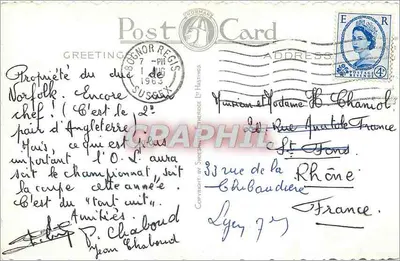 Post Card
GREETING
ADDRESS
BOGNOR REGIS
7 - PM
1 AUG
1963
SUSSEX
E R
4D
Propriété du duc de
Norfolk. Encore
chef! (C'est de 2ᵉ
pair d'Angleterre)
Mais, ce qui est plus
important l'O.L. aura
soit le championnat, soit
la coupe cette année.
C'est du "tout cuit".
Amitiés.
P. Chaboud
Jean Chaboud
Monsieur et Madame H. Chaniol
Rue Anatole France
St Fons
33 rue de la
Thibaudière
Rhône
France.
Lyon 7ᵉ
CARTHAPHIL